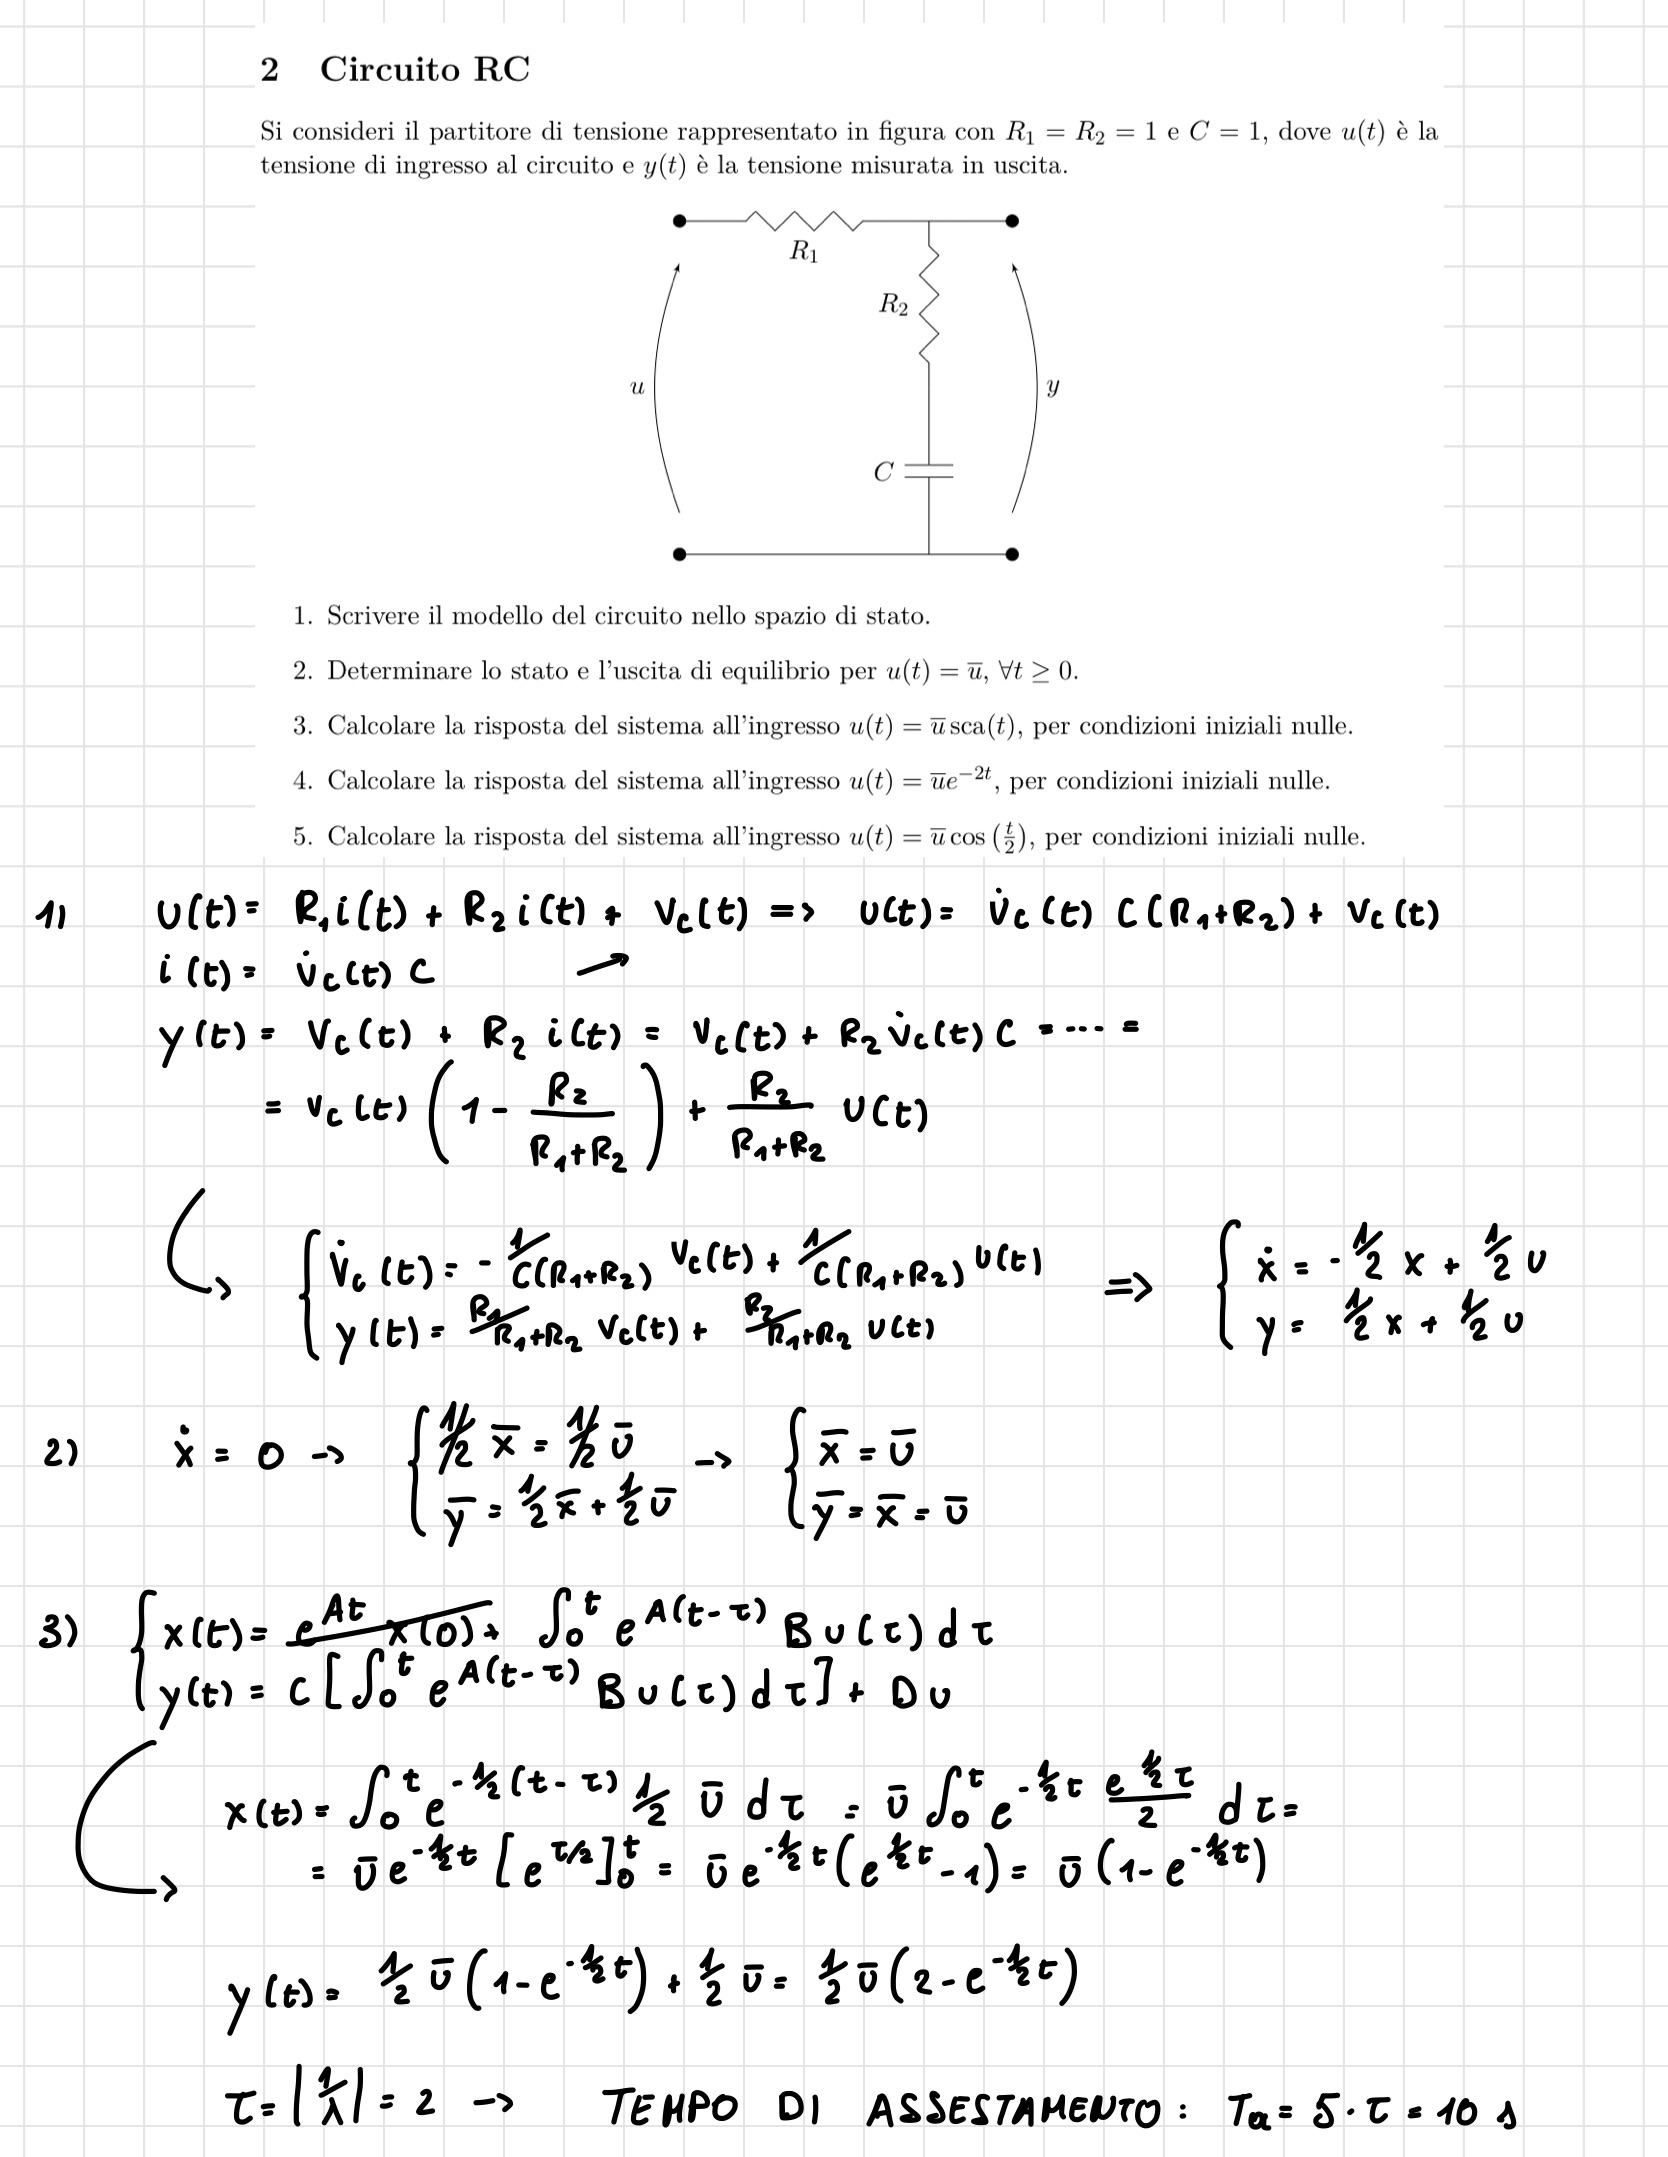 2 Circuito RC
Si consideri il partitore di tensione rappresentato in figura con R₁ = R₂ = 1 e C = 1, dove u(t) è la
tensione di ingresso al circuito e y(t) è la tensione misurata in uscita.
R₁
R₂
u
y
C
1. Scrivere il modello del circuito nello spazio di stato.
2. Determinare lo stato e l'uscita di equilibrio per u(t) = ū, ∀t ≥ 0.
3. Calcolare la risposta del sistema all'ingresso u(t) = ū sca(t), per condizioni iniziali nulle.
4. Calcolare la risposta del sistema all'ingresso u(t) = ūe⁻²ᵗ, per condizioni iniziali nulle.
5. Calcolare la risposta del sistema all'ingresso u(t) = ū cos (t/2), per condizioni iniziali nulle.
1) U(t) = R₁i(t) + R₂i(t) + Vc(t) => U(t) = V̇c(t) C(R₁+R₂) + Vc(t)
i(t) = V̇c(t) C ↗
y(t) = Vc(t) + R₂ i(t) = Vc(t) + R₂V̇c(t)C = ... =
= Vc(t) (1 - R₂/(R₁+R₂)) + R₂/(R₁+R₂) U(t)
{ V̇c(t) = - 1/C(R₁+R₂) Vc(t) + 1/C(R₁+R₂) U(t) => { ẋ = - 1/2 x + 1/2 U
y(t) = R₁/R₁+R₂ Vc(t) + R₂/R₁+R₂ U(t) y = 1/2 x + 1/2 U
2) ẋ = 0 -> { 1/2 x̄ = 1/2 Ū -> { x̄ = Ū
ȳ = 1/2 x̄ + 1/2 Ū ȳ = x̄ = Ū
3) { x(t) = e^(At) x(0) + ∫₀ᵗ e^(A(t-τ)) B U(τ) dτ
y(t) = C [∫₀ᵗ e^(A(t-τ)) B U(τ) dτ] + D U
x(t) = ∫₀ᵗ e^(-1/2(t-τ)) 1/2 Ū dτ = Ū ∫₀ᵗ e^(-1/2 t) e^(1/2 τ)/2 dτ =
= Ū e^(-1/2 t) [e^(τ/2)]₀ᵗ = Ū e^(-1/2 t) (e^(1/2 t) - 1) = Ū (1 - e^(-1/2 t))
y(t) = 1/2 Ū (1 - e^(-1/2 t)) + 1/2 Ū = 1/2 Ū (2 - e^(-1/2 t))
τ = |1/λ| = 2 -> TEMPO DI ASSESTAMENTO: Ta = 5·τ = 10 s